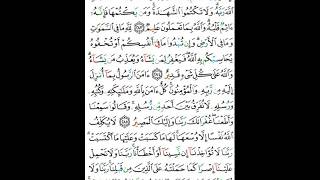 ٱللَّهَ رَبَّهُۥ وَلَا تَكْتُمُوا۟ ٱلشَّهَٰدَةَ وَمَن يَكْتُمْهَا فَإِنَّهُۥٓ
ءَاثِمٌ قَلْبُهُۥ وَٱللَّهُ بِمَا تَعْمَلُونَ عَلِيمٌ ﴿٢٨٣﴾ لِّلَّهِ مَا فِى ٱلسَّمَٰوَٰتِ
وَمَا فِى ٱلْأَرْضِ وَإِن تُبْدُوا۟ مَا فِىٓ أَنفُسِكُمْ أَوْ تُخْفُوهُ
يُحَاسِبْكُم بِهِ ٱللَّهُ فَيَغْفِرُ لِمَن يَشَآءُ وَيُعَذِّبُ مَن يَشَآءُ
وَٱللَّهُ عَلَىٰ كُلِّ شَىْءٍ قَدِيرٌ ﴿٢٨٤﴾ ءَامَنَ ٱلرَّسُولُ بِمَآ أُنزِلَ
إِلَيْهِ مِن رَّبِّهِۦ وَٱلْمُؤْمِنُونَ كُلٌّ ءَامَنَ بِٱللَّهِ وَمَلَٰٓئِكَتِهِۦ وَكُتُبِهِۦ
وَرُسُلِهِۦ لَا نُفَرِّقُ بَيْنَ أَحَدٍ مِّن رُّسُلِهِۦ وَقَالُوا۟ سَمِعْنَا
وَأَطَعْنَا غُفْرَانَكَ رَبَّنَا وَإِلَيْكَ ٱلْمَصِيرُ ﴿٢٨٥﴾ لَا يُكَلِّفُ
ٱللَّهُ نَفْسًا إِلَّا وُسْعَهَا لَهَا مَا كَسَبَتْ وَعَلَيْهَا مَا ٱكْتَسَبَتْ
رَبَّنَا لَا تُؤَاخِذْنَآ إِن نَّسِينَآ أَوْ أَخْطَأْنَا رَبَّنَا وَلَا تَحْمِلْ
عَلَيْنَآ إِصْرًا كَمَا حَمَلْتَهُۥ عَلَى ٱلَّذِينَ مِن قَبْلِنَا رَبَّنَا وَلَا